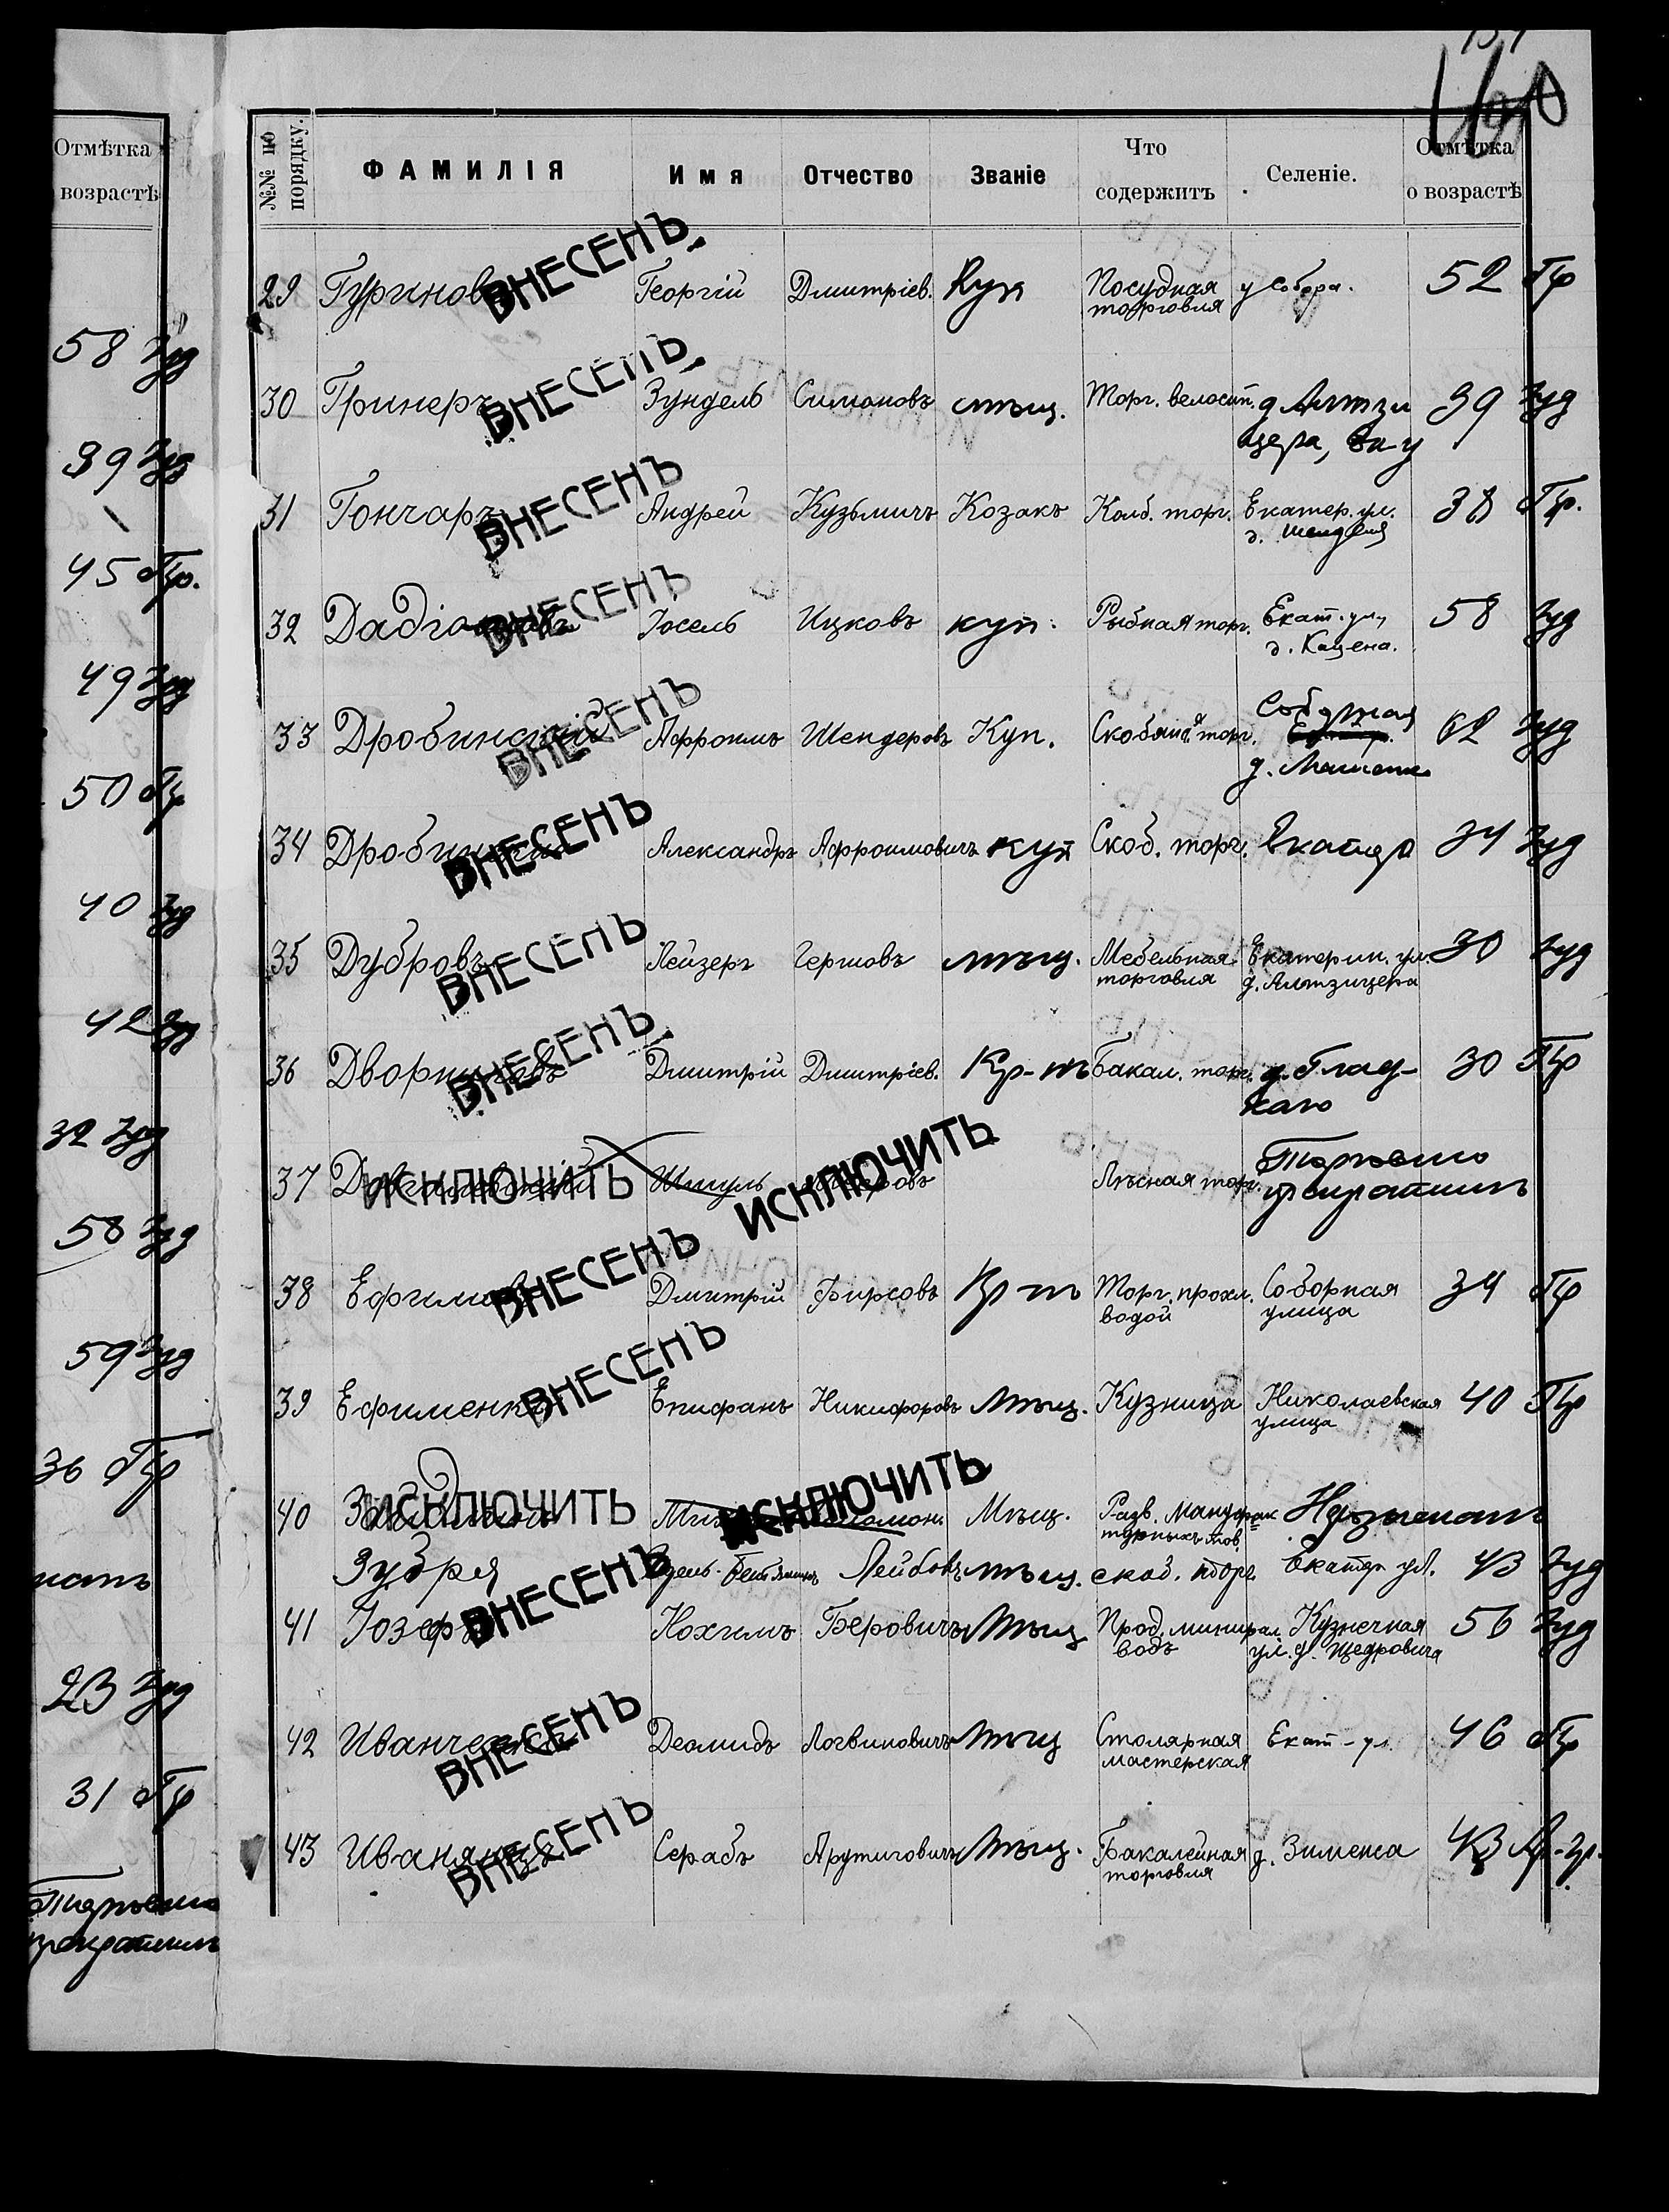 Отмѣтка
возрастѣ
58 Іуд
39 Іуд
45 Пр.
49 Іуд
50 Пр
40 Іуд
42 Іуд
32 Іуд
58 Іуд
59 Іуд
36 Пр
23 Іуд
31 Пр
Торговлю
прекратилъ
№№ по порядку.
ФАМИЛІЯ
Имя
Отчество
Званіе
Что содержитъ
Селеніе.
Отмѣтка о возрастѣ
29 Гуриновъ ВНЕСЕНЪ Георгій Дмитріев. Куп Посудная торговля у Собора. 52 Пр
30 Гринеръ ВНЕСЕНЪ Зундель Симоновъ мѣщ. Торг. велосип. д Алтзи
цера, 39 Іуд
31 Гончаръ ВНЕСЕНЪ Андрей Кузьмичъ Козакъ Колб. торг. Екатер. ул.
д. 38 Пр.
32 ВНЕСЕНЪ Іосель Ицковъ куп. Рыбная торг. Екат. ул,
д. Кацена. 58 Іуд
33 Дробинскій ВНЕСЕНЪ Афроимъ Шендеровъ Куп. торг. Соборная
д. 62 Іуд
34 ВНЕСЕНЪ Александръ Афроимовичъ куп Скоб. торг. Екатер 34 Іуд
35 Дубровъ ВНЕСЕНЪ Лейзеръ Гершовъ мѣщ. Мебельная
торговля Екатерин. ул.
д. Алтзицера 30 Іуд
36 Дворниковъ ВНЕСЕНЪ Дмитрій Дмитріев. Кр-нъ Бакал. торг. д. Глад-
каго 30 Пр
37 ИСКЛЮЧИТЬ Шмуль ИСКЛЮЧИТЬ Лѣсная торг. Торговлю
прекратилъ
38 Ефимовъ ВНЕСЕНЪ Дмитрій Фирсовъ Кр-нъ Торг. прохл.
водой Соборная
улица 34 Пр
39 Ефименко ВНЕСЕНЪ Епифанъ Никифоровъ мѣщ. Кузница Николаевская
улица 40 Пр
40 ИСКЛЮЧИТЬ ИСКЛЮЧИТЬ Мѣщ. Разв. мануфак
турныхъ тов.
Зубря Лейбовъ мѣщ. скоб. торг. Екатер ул. 43 Іуд
41 Іозефъ ВНЕСЕНЪ Нохимъ Беровичъ Мѣщ Прод. минирал
водъ Кузнечная
ул. д. Щедровича 56 Іуд
42 Иванченко ВНЕСЕНЪ Деомидъ Логвиновичъ Мѣщ Столярная
мастерская Екат-ул. 46 Пр
43 Иванянцъ ВНЕСЕНЪ Серабъ Арутиновичъ Мѣщ. Бакалейная
торговля д. Зимена 43 Ар-гр.